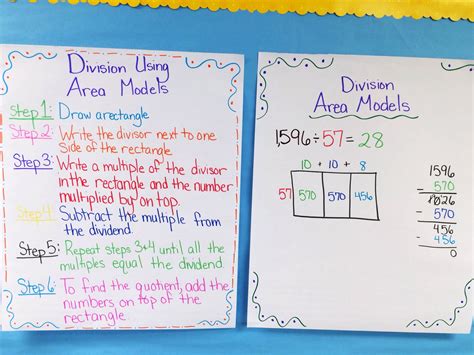 Division Using
Area Models
Step 1: Draw a rectangle.
Step 2: Write the divisor next to one
side of the rectangle.
Step 3: Write a multiple of the divisor
in the rectangle and the number
multiplied by on top.
Step 4: Subtract the multiple from
the dividend.
Step 5: Repeat steps 3+4 until all the
multiples equal the dividend.
Step 6: To find the quotient, add the
numbers on top of the
rectangle.
Division
Area Models
1,596 ÷ 57 = 28
10 + 10 + 8
57 570 570 456
1596
- 570
1026
- 570
456
- 456
0